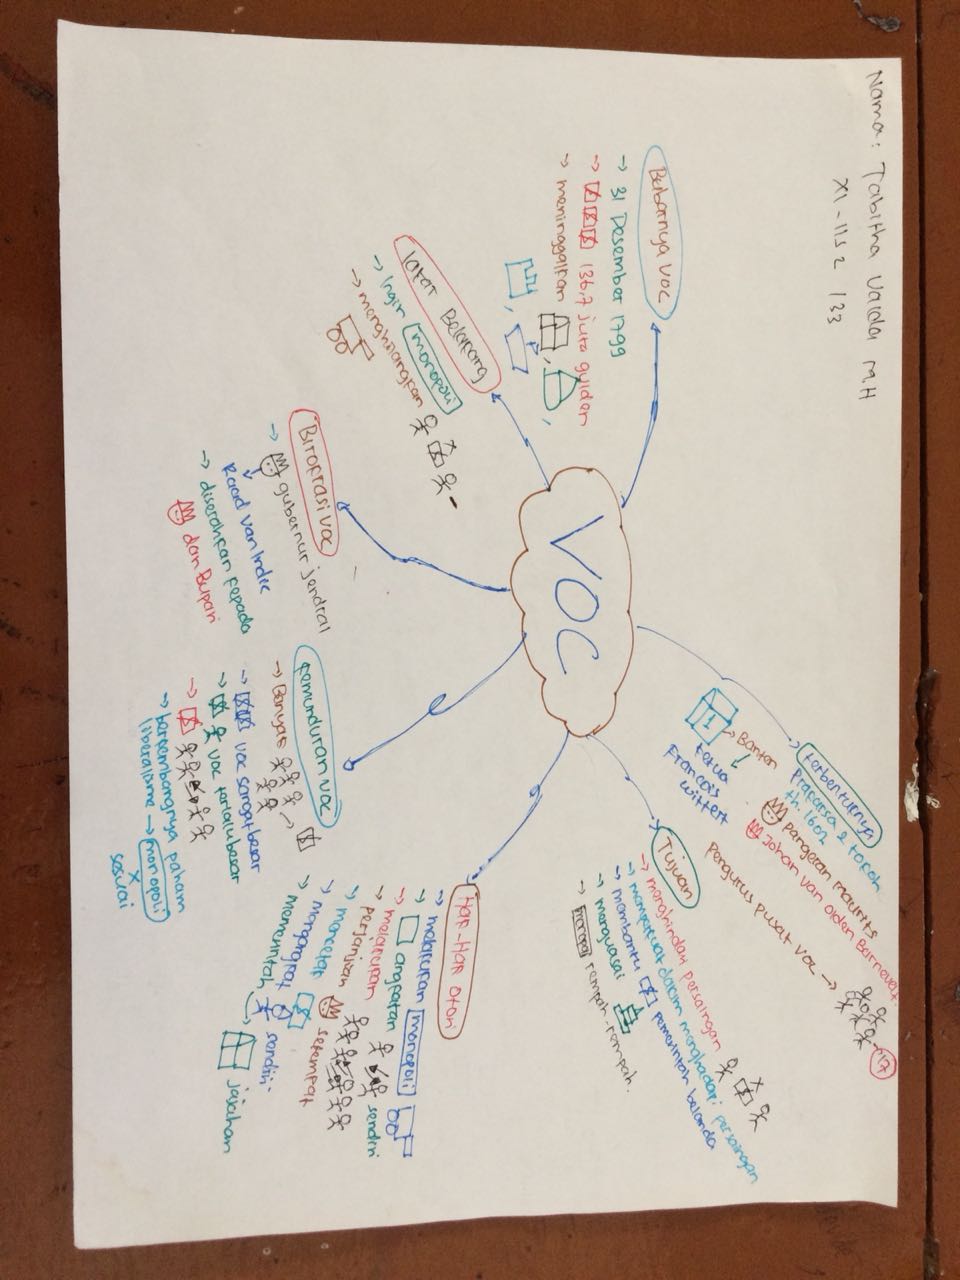 Nama: Tabitha Vaida M.H
XI-IIS 2 /33
VOC
Bubarnya VOC
→ 31 Desember 1799
→ 136,7 juta gulden
→ meninggalkan
Latar Belakang
→ Ingin monopoli
→ menghilangkan
Birokrasi VOC
→ gubernur jendral
Raad van Indie
→ diserahkan kepada
dan Bupati
kemunduran VOC
→ Banyak
→ VOC sangat besar
→ VOC terlalu besar
→
→ berkembangnya paham
liberalisme → monopoli
x
sesuai
Hak-Hak Oktroi
→ melakukan monopoli
→ angkatan sendiri
→ melakukan
perjanjian
→ mencetak setempat
→ Mengangkat sendiri
→ Memerintah jajahan
Tujuan
→ menghindari persaingan
→ memperkuat dalam menghadapi persaingan
→ membantu pemerintah belanda
→ menguasai
rempah-rempah.
terbentuknya
Prakarsa 2 tokoh
th. 1602
pangeran maurits
Johan van olden Barnevelt
pengurus pusat VOC → 17
1 → Banten
ketua
Francois
wittert